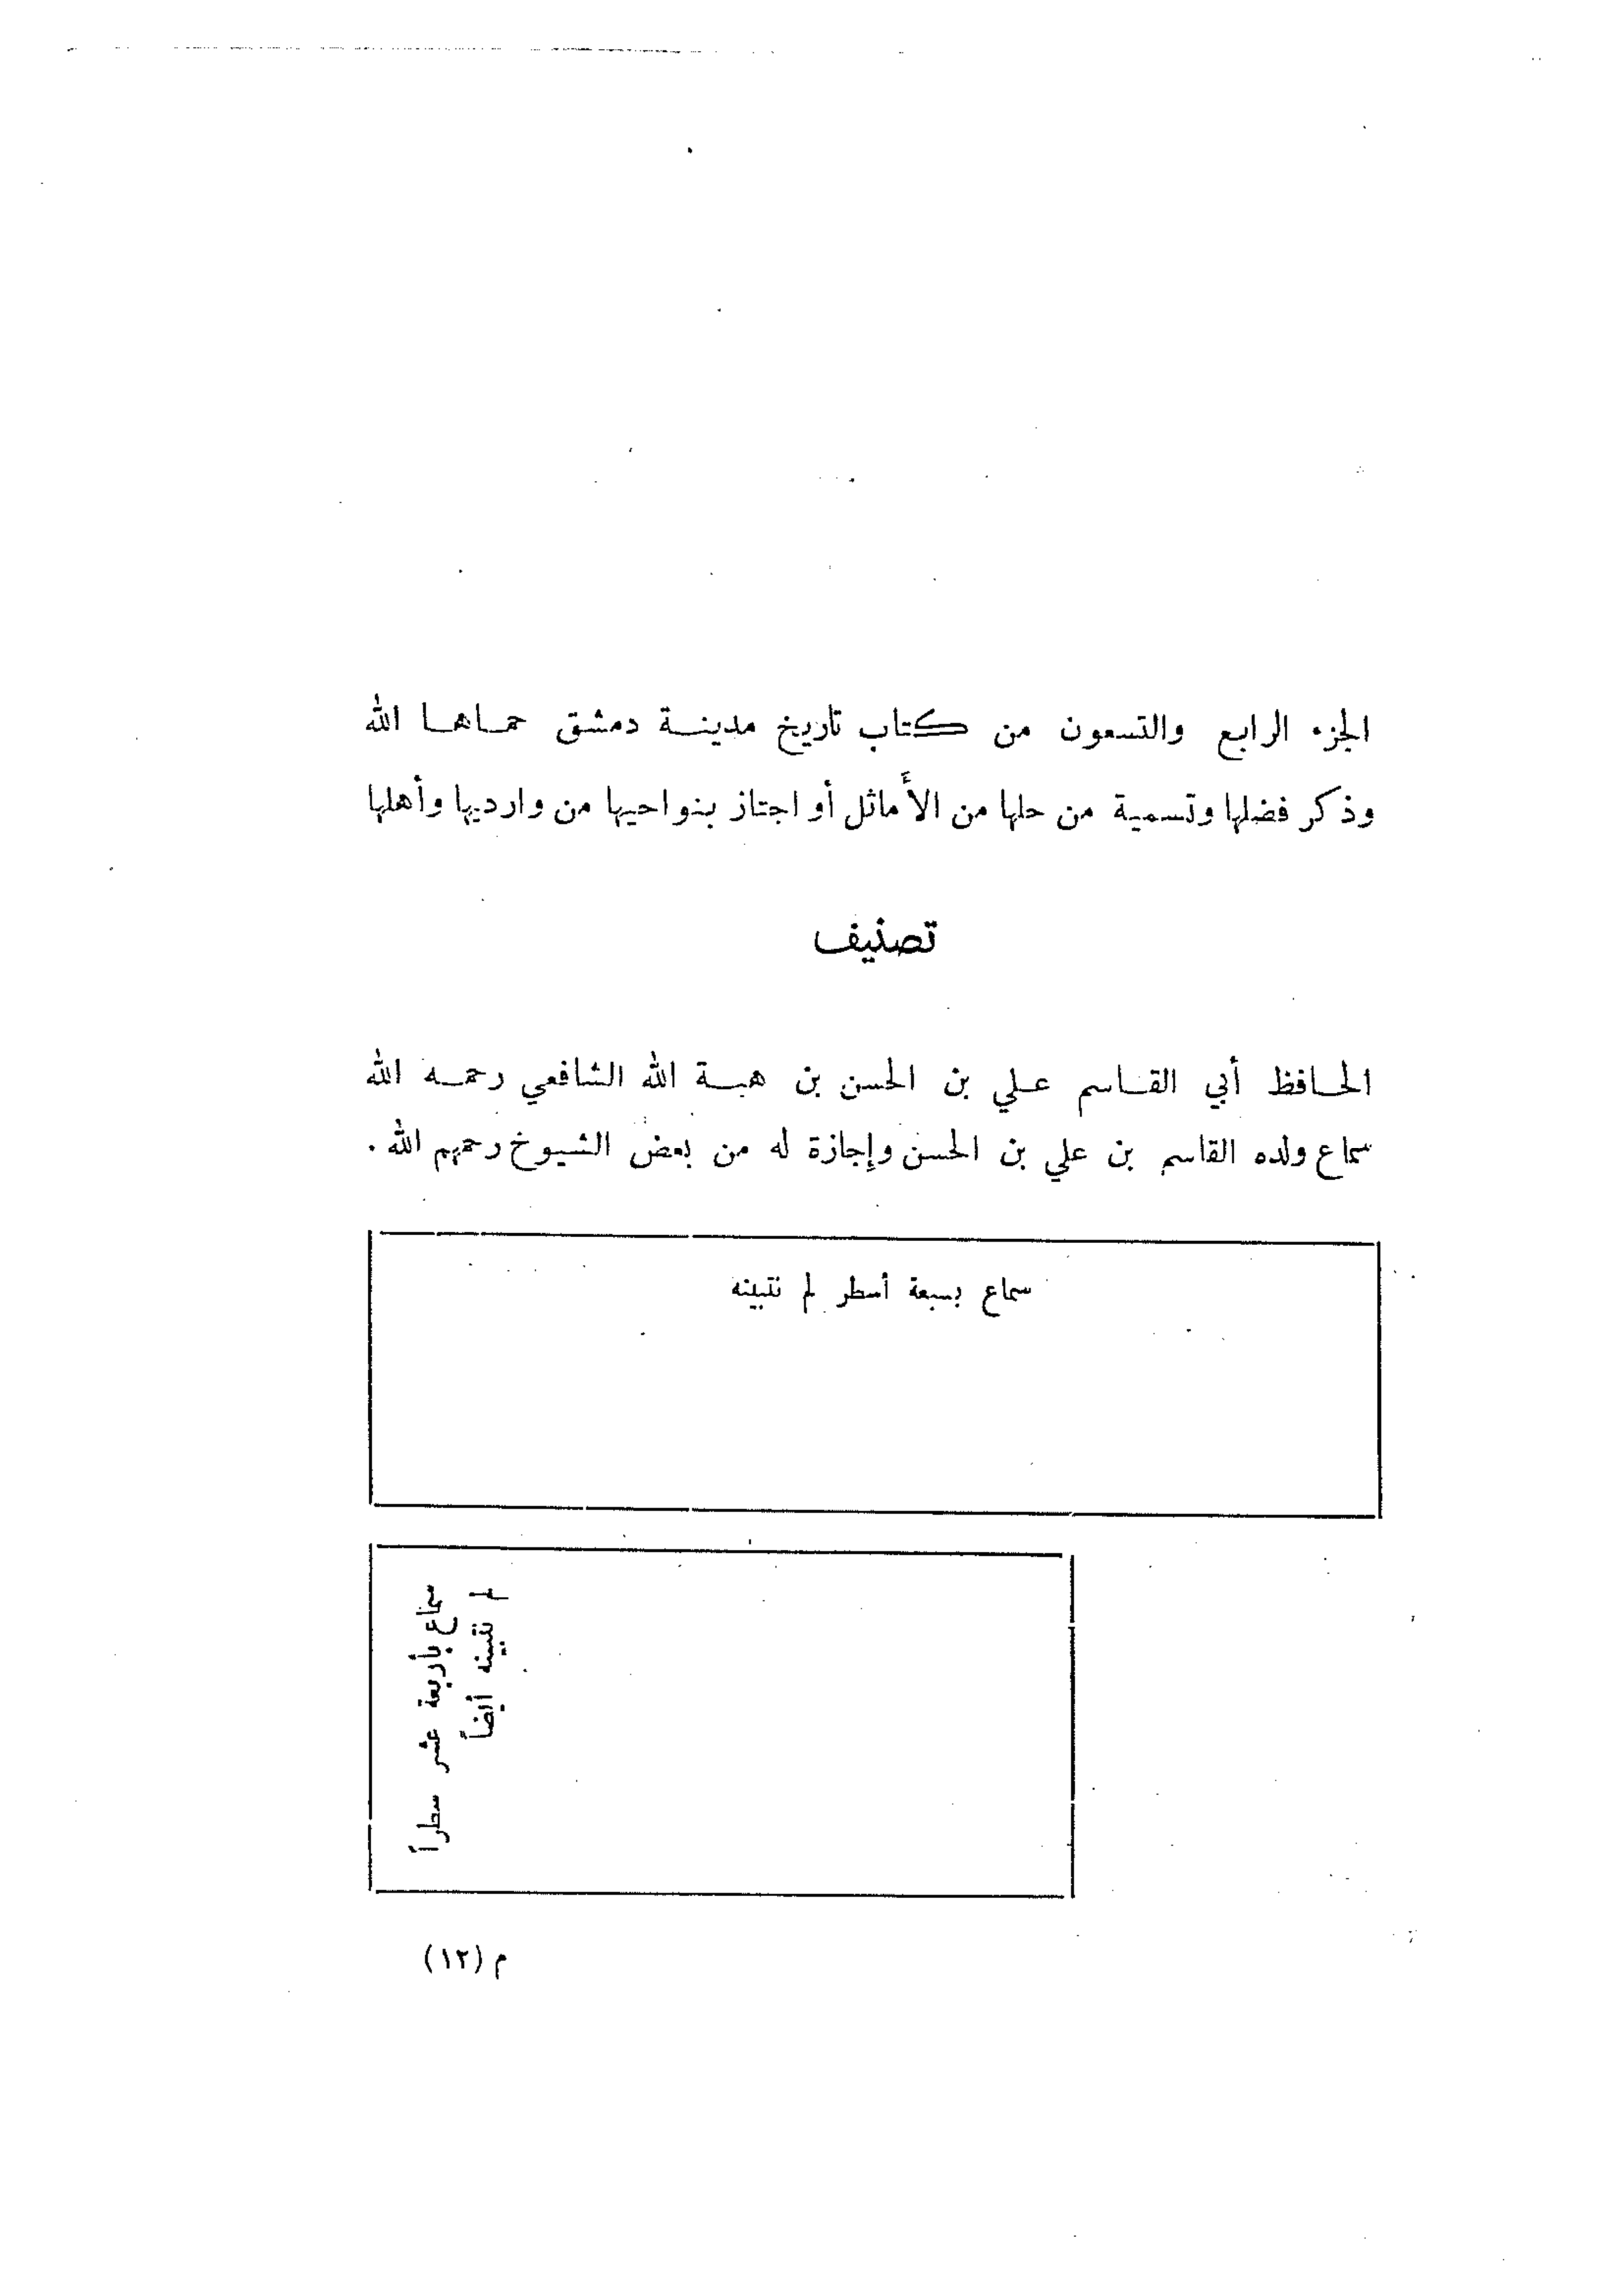 الجزء الرابع والتسعون من كتاب تاريخ مدينة دمشق حماها الله
وذكر فضلها وتسمية من حلها من الأَماثل أو اجتاز بنواحيها من وارديها وأهلها
تصنيف
الحافظ أبي القاسم علي بن الحسن بن هبة الله الشافعي رحمه الله
سماع ولده القاسم بن علي بن الحسن وإجازة له من بعض الشيوخ رحمهم الله.
سماع بسبعة أسطر لم نتبينه
سماع بأربعة عشر سطراً
لم نتبينه أيضاً
م (١٢)